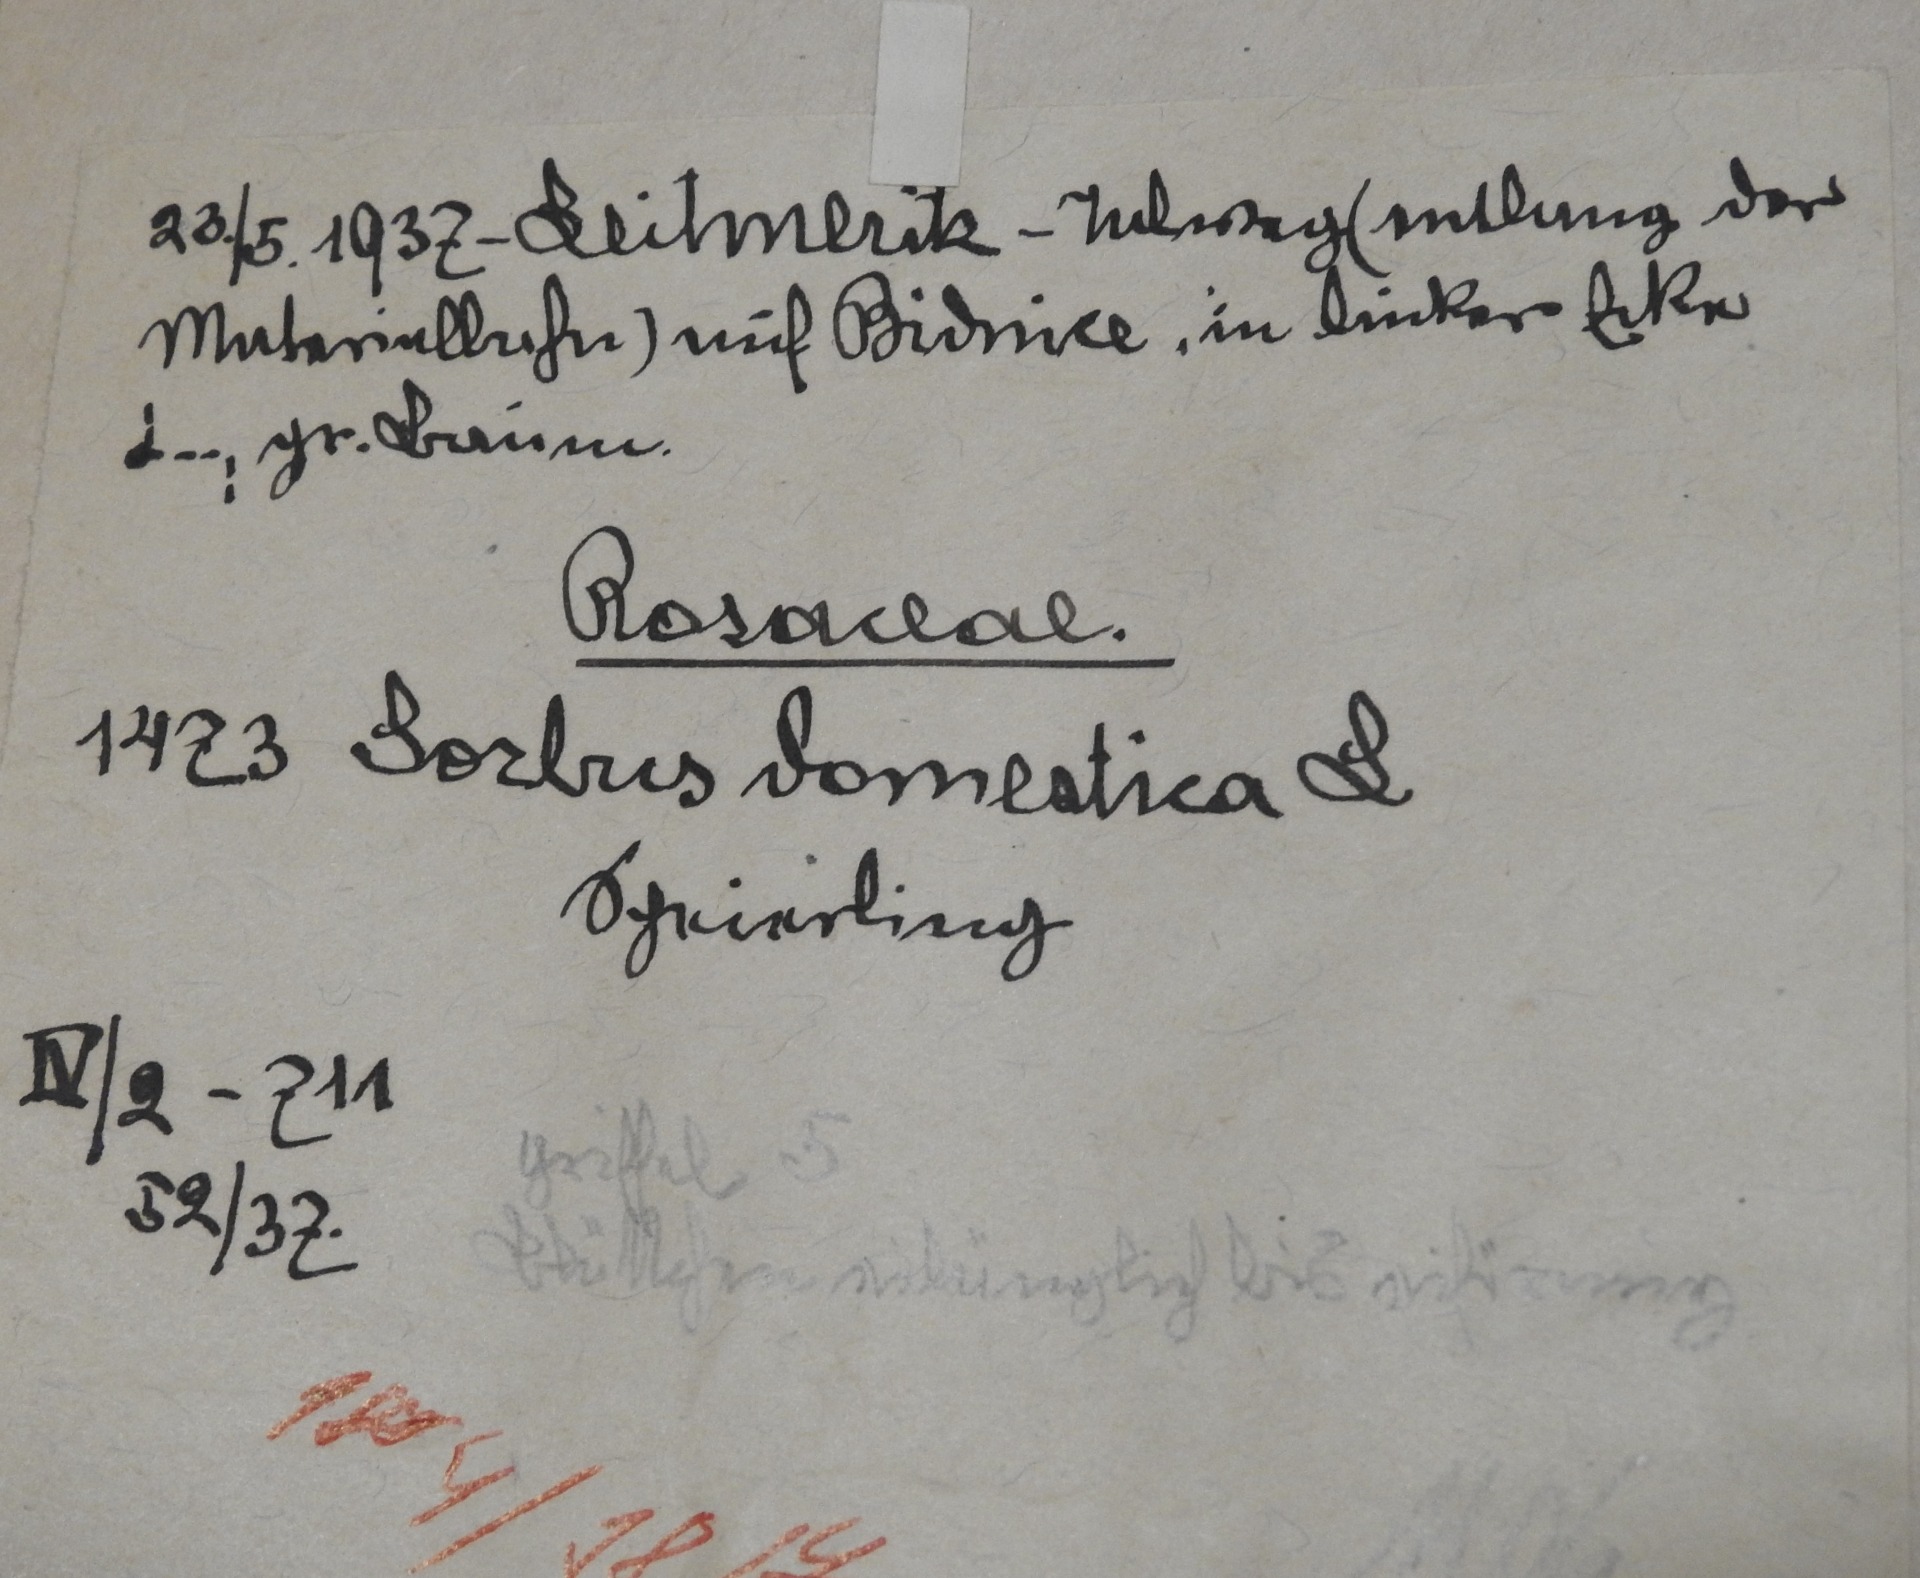 23./5. 1937 - Leitmeritz - Talweg (entlang der
Materialbahn) auf Bidnice, in linker Ecke
gr. Baum.
Rosaceae.
1473 Sorbus domestica L
Speierling
IV/2 - 711
52/37.
Griffel 5
Blättchen